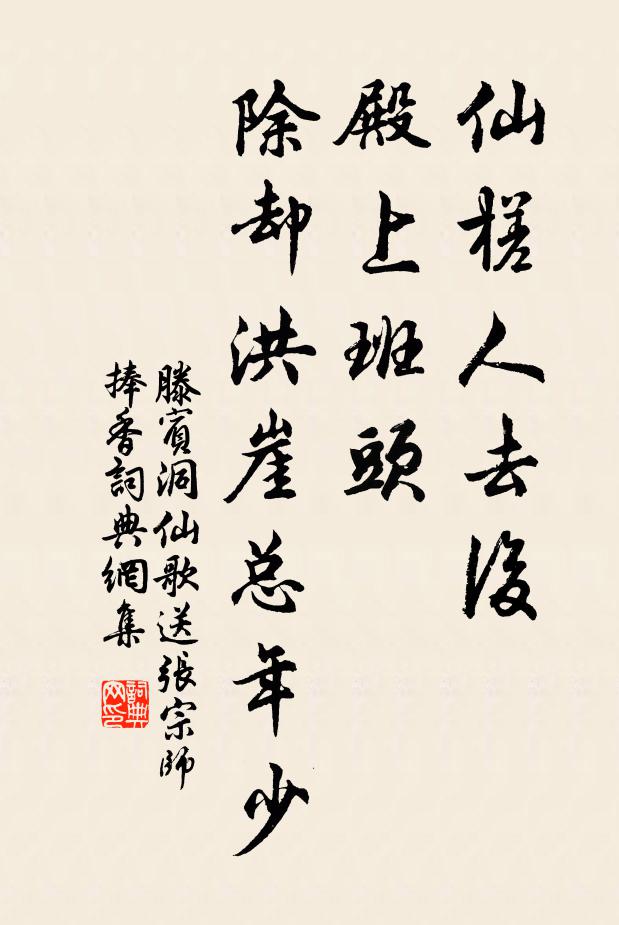 仙槎人去後
殿上班頭
除却洪崖总年少
滕賓洞仙歌送張宗師
捧香詞典網集
詞典
网印